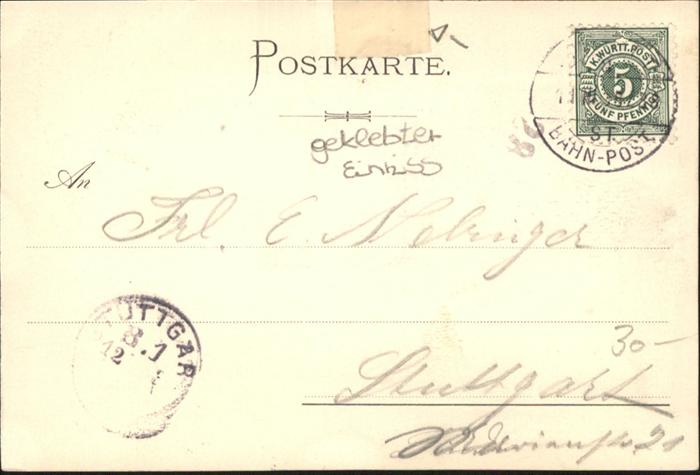 POSTKARTE.
K. WÜRTT. POST
5
FÜNF PFENNIG
ST.
BAHN-POST
geklebter
Einriss
An
Frl. E.
STUTTGAR
8.1
12
30-
Stuttgart